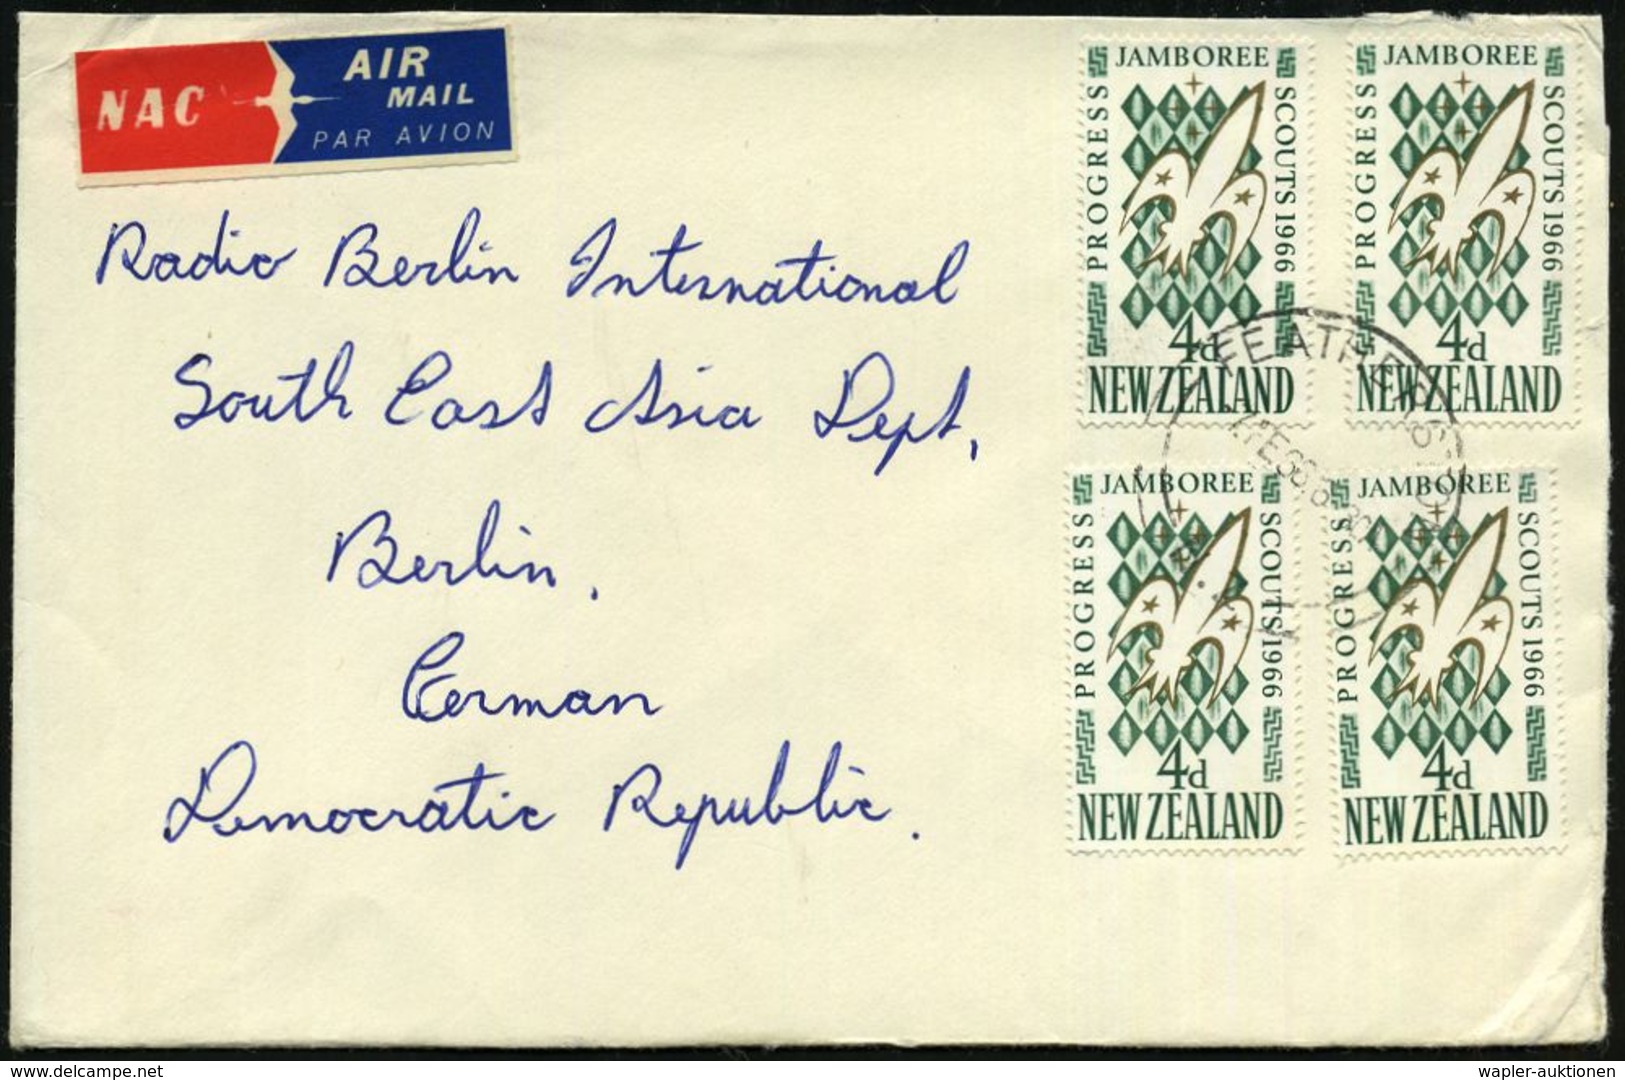 NAC
AIR
MAIL
PAR AVION
Radio Berlin International
South East Asia Dept,
Berlin.
German
Democratic Republic.
JAMBOREE
PROGRESS
SCOUTS 1966
4d
NEW ZEALAND
JAMBOREE
PROGRESS
SCOUTS 1966
4d
NEW ZEALAND
JAMBOREE
PROGRESS
SCOUTS 1966
4d
NEW ZEALAND
JAMBOREE
PROGRESS
SCOUTS 1966
4d
NEW ZEALAND
delcampe.net
wapler-auktionen